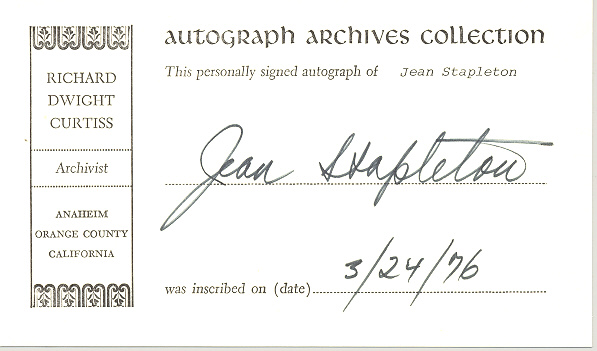 RICHARD
DWIGHT
CURTISS
Archivist
ANAHEIM
ORANGE COUNTY
CALIFORNIA
AUTOGRAPH ARCHIVES COLLECTION
This personally signed autograph of Jean Stapleton
Jean Stapleton
was inscribed on (date) 3/24/76